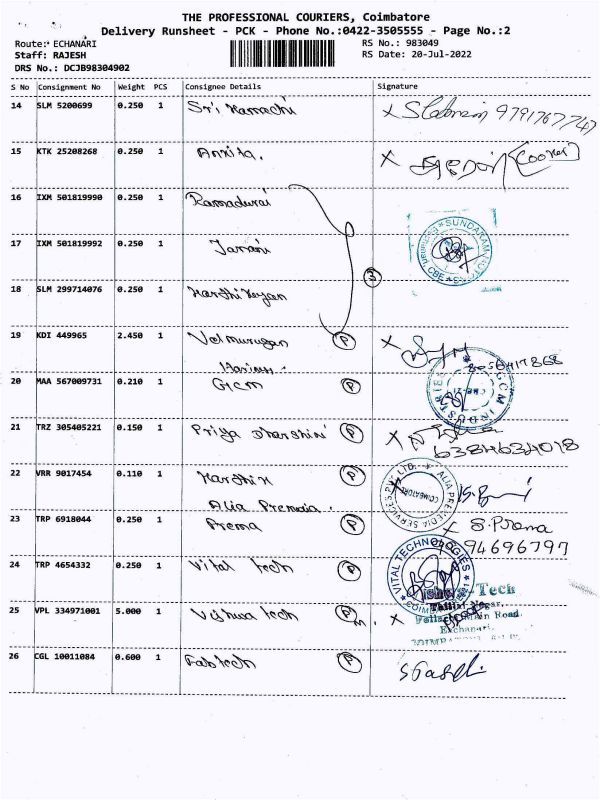 THE PROFESSIONAL COURIERS, Coimbatore
Delivery Runsheet - PCK - Phone No.:0422-3505555 - Page No.:2
Route: ECHANARI RS No.: 983049
Staff: RAJESH RS Date: 20-Jul-2022
DRS No.: DCJB98304902
S No Consignment No Weight PCS Consignee Details Signature
14 SLM 5200699 0.250 1 Sri Kamachi 9791767747
15 KTK 25208268 0.250 1 Ankita.
16 IXM 501819990 0.250 1 Ramadurai
SUNDARAM
CBE
17 IXM 501819992 0.250 1 Janani
3
18 SLM 299714076 0.250 1 Karthikeyan
19 KDI 449965 2.450 1 Velmurugan P
8056417868
20 MAA 567009731 0.210 1 Gcm P
GCM INDUSTRIES
21 TRZ 305405221 0.150 1 Priya Dharshini P
6384634018
22 VRR 9017454 0.110 1 Karthik P
Alia Premedia.
ALIA PREMEDIA SERVICES PVT. LTD.
COIMBATORE
23 TRP 6918044 0.250 1 Prema P S. Prema
94696797
24 TRP 4654332 0.250 1 Vital tech P
VITAL TECHNOLOGIES
25 VPL 334971001 5.000 1 Vishwa tech P
Tech
Main Road
26 CGL 10011084 0.600 1 Fabtech P